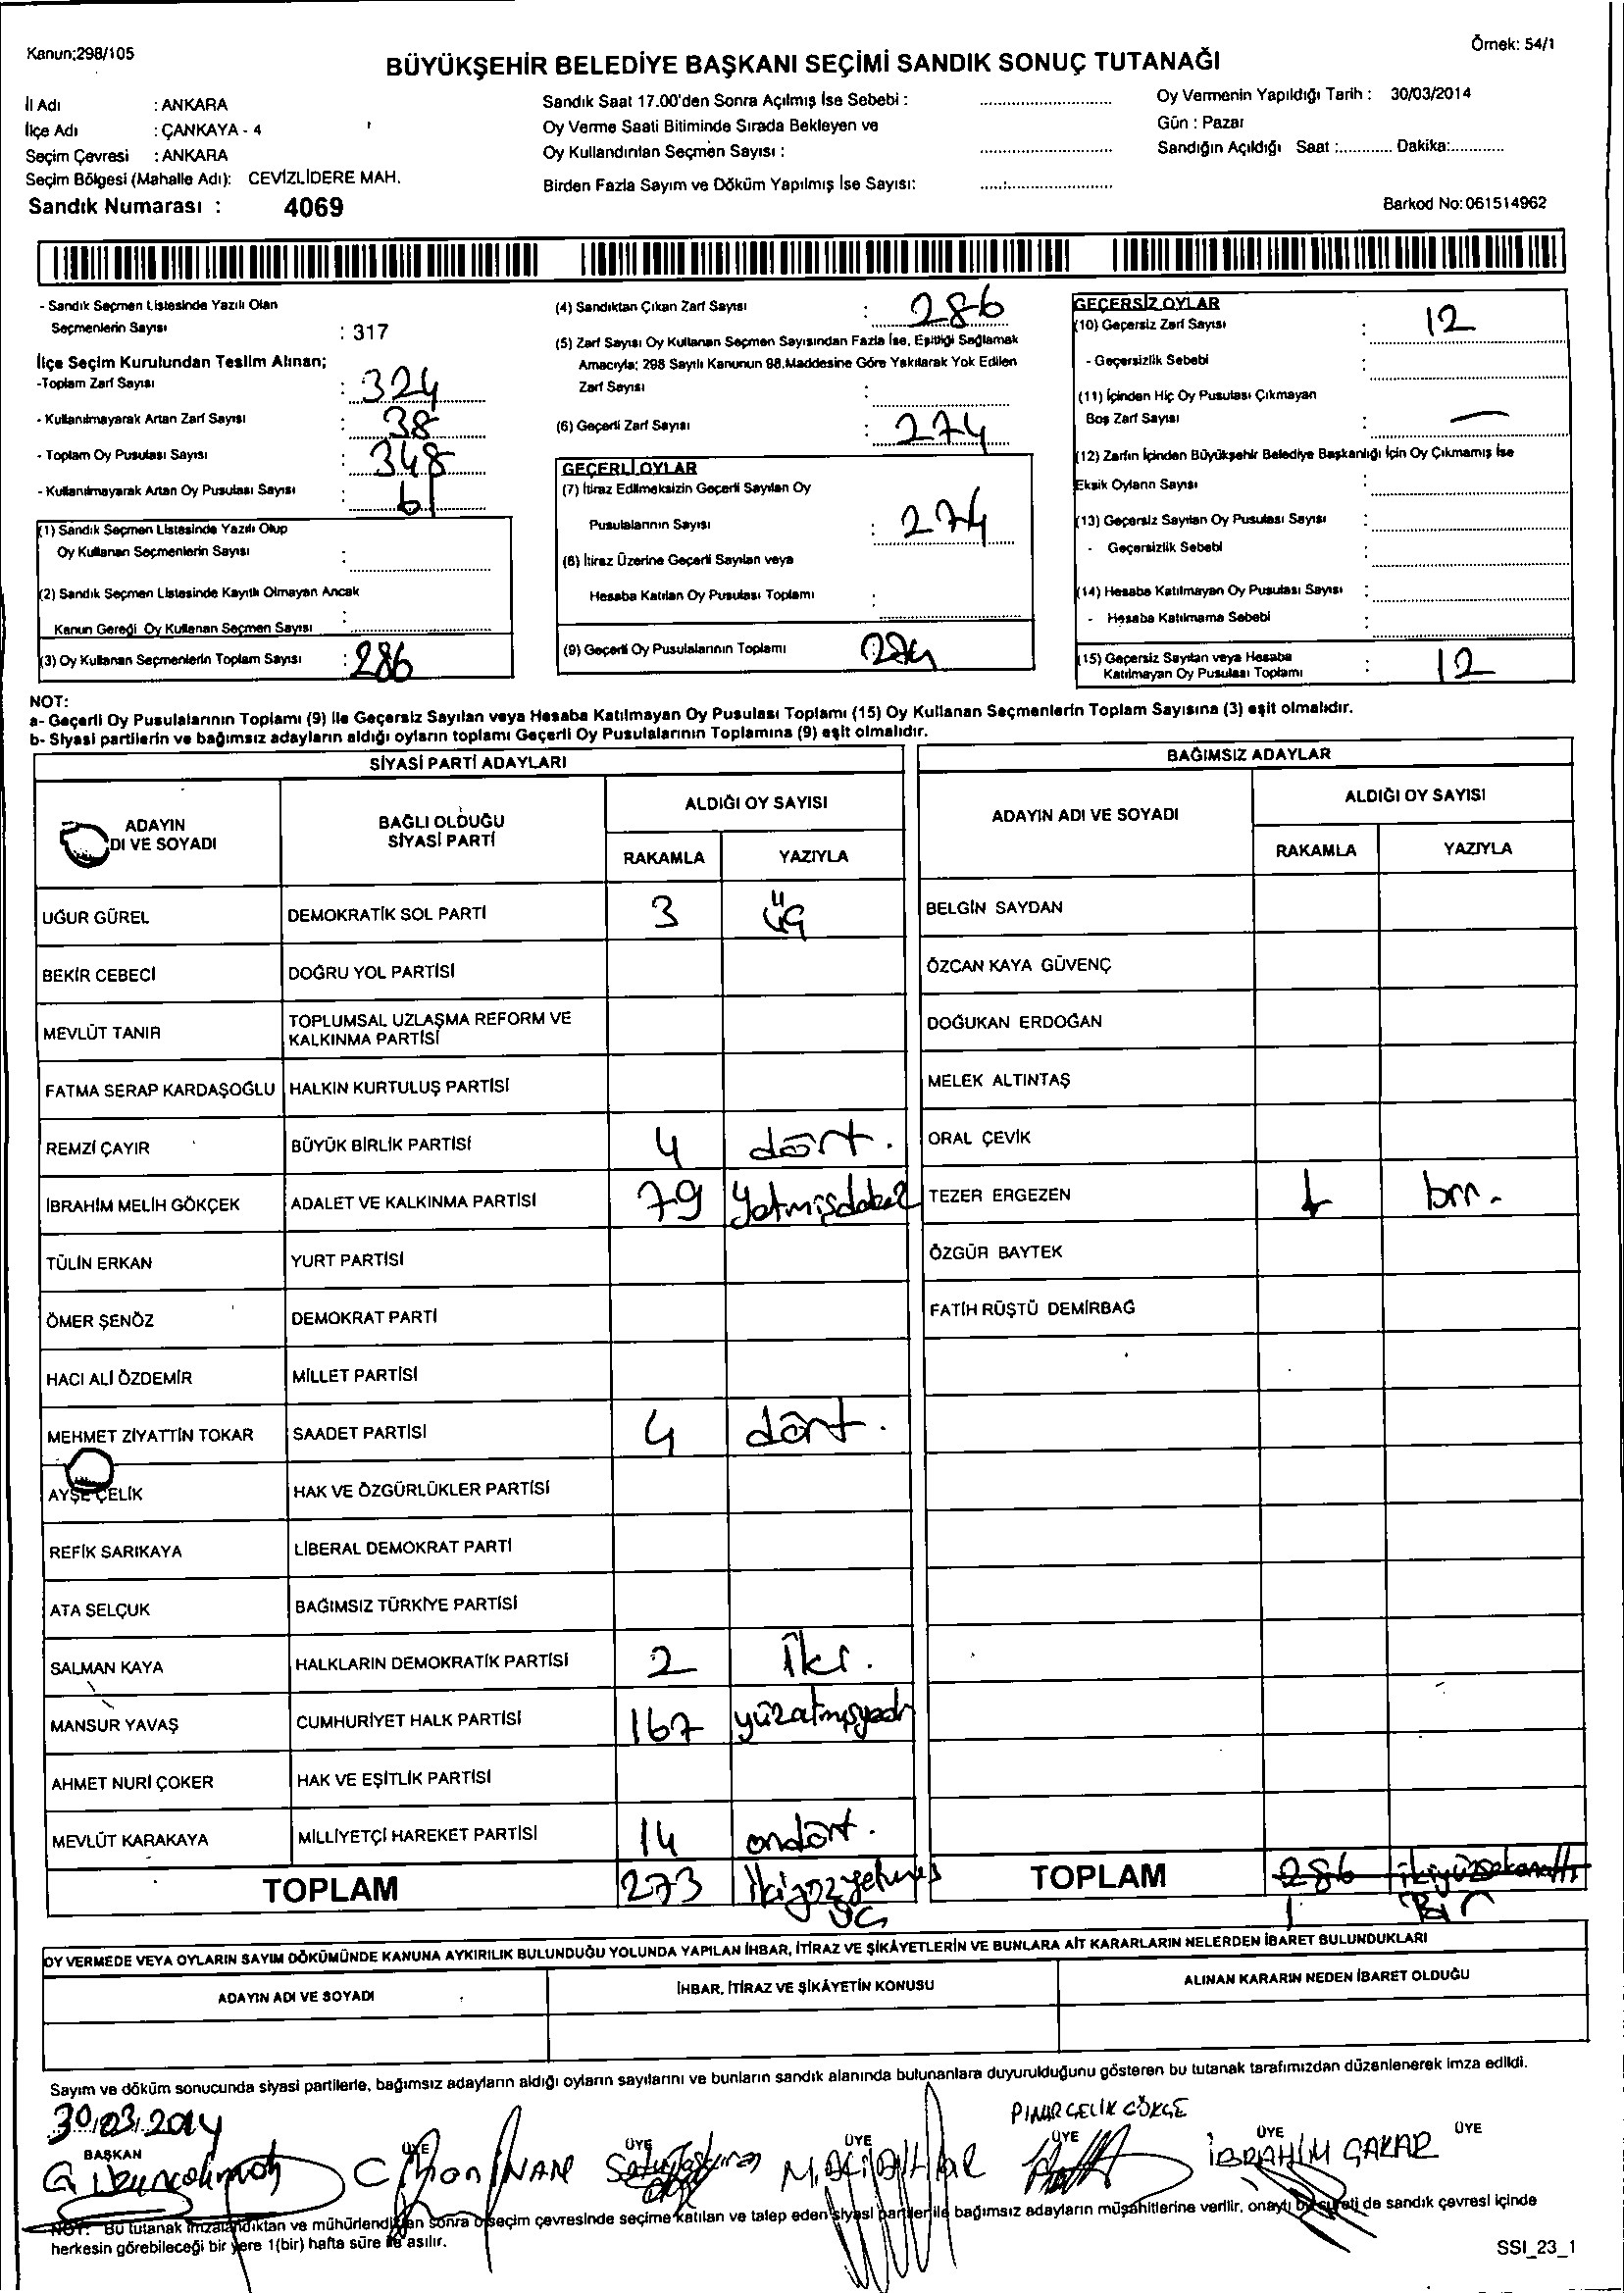 Kanun:298/105
Örnek: 54/1
BÜYÜKŞEHİR BELEDİYE BAŞKANI SEÇİMİ SANDIK SONUÇ TUTANAĞI
İl Adı : ANKARA
İlçe Adı : ÇANKAYA - 4
Seçim Çevresi : ANKARA
Seçim Bölgesi (Mahalle Adı): CEVİZLİDERE MAH.
Sandık Numarası : 4069
Sandık Saat 17.00'den Sonra Açılmış İse Sebebi :
Oy Verme Saati Bitiminde Sırada Bekleyen ve
Oy Kullandırılan Seçmen Sayısı :
Birden Fazla Sayım ve Döküm Yapılmış İse Sayısı:
Oy Vermenin Yapıldığı Tarih : 30/03/2014
Gün : Pazar
Sandığın Açıldığı Saat :............ Dakika:............
Barkod No:061514962
- Sandık Seçmen Listesinde Yazılı Olan
Seçmenlerin Sayısı : 317
İlçe Seçim Kurulundan Teslim Alınan;
-Toplam Zarf Sayısı : 324
- Kullanılmayarak Artan Zarf Sayısı : 38
- Toplam Oy Pusulası Sayısı : 348
- Kullanılmayarak Artan Oy Pusulası Sayısı : 61
(1) Sandık Seçmen Listesinde Yazılı Olup
Oy Kullanan Seçmenlerin Sayısı :
(2) Sandık Seçmen Listesinde Kayıtlı Olmayan Ancak
Kanun Gereği Oy Kullanan Seçmen Sayısı :
(3) Oy Kullanan Seçmenlerin Toplam Sayısı : 286
(4) Sandıktan Çıkan Zarf Sayısı : 286
(5) Zarf Sayısı Oy Kullanan Seçmen Sayısından Fazla İse, Eşitliği Sağlamak
Amacıyla; 298 Sayılı Kanunun 98.Maddesine Göre Yakılarak Yok Edilen
Zarf Sayısı :
(6) Geçerli Zarf Sayısı : 274
GEÇERLİ OYLAR
(7) İtiraz Edilmeksizin Geçerli Sayılan Oy
Pusulalarının Sayısı : 274
(8) İtiraz Üzerine Geçerli Sayılan veya
Hesaba Katılan Oy Pusulası Toplamı :
(9) Geçerli Oy Pusulalarının Toplamı 274
GEÇERSİZ OYLAR
(10) Geçersiz Zarf Sayısı : 12
- Geçersizlik Sebebi :
(11) İçinden Hiç Oy Pusulası Çıkmayan
Boş Zarf Sayısı : —
(12) Zarfın İçinden Büyükşehir Belediye Başkanlığı İçin Oy Çıkmamış İse
Eksik Oyların Sayısı :
(13) Geçersiz Sayılan Oy Pusulası Sayısı :
- Geçersizlik Sebebi :
(14) Hesaba Katılmayan Oy Pusulası Sayısı :
- Hesaba Katılmama Sebebi :
(15) Geçersiz Sayılan veya Hesaba
Katılmayan Oy Pusulası Toplamı : 12
NOT:
a- Geçerli Oy Pusulalarının Toplamı (9) ile Geçersiz Sayılan veya Hesaba Katılmayan Oy Pusulası Toplamı (15) Oy Kullanan Seçmenlerin Toplam Sayısına (3) eşit olmalıdır.
b- Siyasi partilerin ve bağımsız adayların aldığı oyların toplamı Geçerli Oy Pusulalarının Toplamına (9) eşit olmalıdır.
SİYASİ PARTİ ADAYLARI
ADAYIN
DI VE SOYADI
BAĞLI OLDUĞU
SİYASİ PARTİ
ALDIĞI OY SAYISI
RAKAMLA YAZIYLA
UĞUR GÜREL DEMOKRATİK SOL PARTİ 3 üç
BEKİR CEBECİ DOĞRU YOL PARTİSİ
MEVLÜT TANIR TOPLUMSAL UZLAŞMA REFORM VE
KALKINMA PARTİSİ
FATMA SERAP KARDAŞOĞLU HALKIN KURTULUŞ PARTİSİ
REMZİ ÇAYIR BÜYÜK BİRLİK PARTİSİ 4 dört.
İBRAHİM MELİH GÖKÇEK ADALET VE KALKINMA PARTİSİ 79
TÜLİN ERKAN YURT PARTİSİ
ÖMER ŞENÖZ DEMOKRAT PARTİ
HACI ALİ ÖZDEMİR MİLLET PARTİSİ
MEHMET ZİYATTİN TOKAR SAADET PARTİSİ 4 dört.
AYŞE ÇELİK HAK VE ÖZGÜRLÜKLER PARTİSİ
REFİK SARIKAYA LİBERAL DEMOKRAT PARTİ
ATA SELÇUK BAĞIMSIZ TÜRKİYE PARTİSİ
SALMAN KAYA HALKLARIN DEMOKRATİK PARTİSİ 2 İki.
MANSUR YAVAŞ CUMHURİYET HALK PARTİSİ 167 yüzatmışyedi
AHMET NURİ ÇOKER HAK VE EŞİTLİK PARTİSİ
MEVLÜT KARAKAYA MİLLİYETÇİ HAREKET PARTİSİ 14 ondört.
TOPLAM 273 İkiyüzyetmiş
üç
BAĞIMSIZ ADAYLAR
ADAYIN ADI VE SOYADI
ALDIĞI OY SAYISI
RAKAMLA YAZIYLA
BELGİN SAYDAN
ÖZCAN KAYA GÜVENÇ
DOĞUKAN ERDOĞAN
MELEK ALTINTAŞ
ORAL ÇEVİK
TEZER ERGEZEN 1 bir.
ÖZGÜR BAYTEK
FATİH RÜŞTÜ DEMİRBAĞ
TOPLAM 286 ikiyüzseksenaltı
1 Bir
OY VERMEDE VEYA OYLARIN SAYIM DÖKÜMÜNDE KANUNA AYKIRILIK BULUNDUĞU YOLUNDA YAPILAN İHBAR, İTİRAZ VE ŞİKÂYETLERİN VE BUNLARA AİT KARARLARIN NELERDEN İBARET BULUNDUKLARI
ADAYIN ADI VE SOYADI İHBAR, İTİRAZ VE ŞİKÂYETİN KONUSU ALINAN KARARIN NEDEN İBARET OLDUĞU
Sayım ve döküm sonucunda siyasi partilerle, bağımsız adayların aldığı oyların sayılarını ve bunların sandık alanında bulunanlara duyurulduğunu gösteren bu tutanak tarafımızdan düzenlenerek imza edildi.
30.03.2014
PINAR ÇELİK GÖKÇE
BAŞKAN ÜYE ÜYE ÜYE ÜYE ÜYE ÜYE
İNAN
İBRAHİM ÇAKAR
NOT: Bu tutanak imzalandıktan ve mühürlendikten sonra o seçim çevresinde seçime katılan ve talep eden siyasi partiler ile bağımsız adayların müşahitlerine verilir, onaylı bir sureti de sandık çevresi içinde
herkesin görebileceği bir yere 1(bir) hafta süre ile asılır.
SSI_23_1